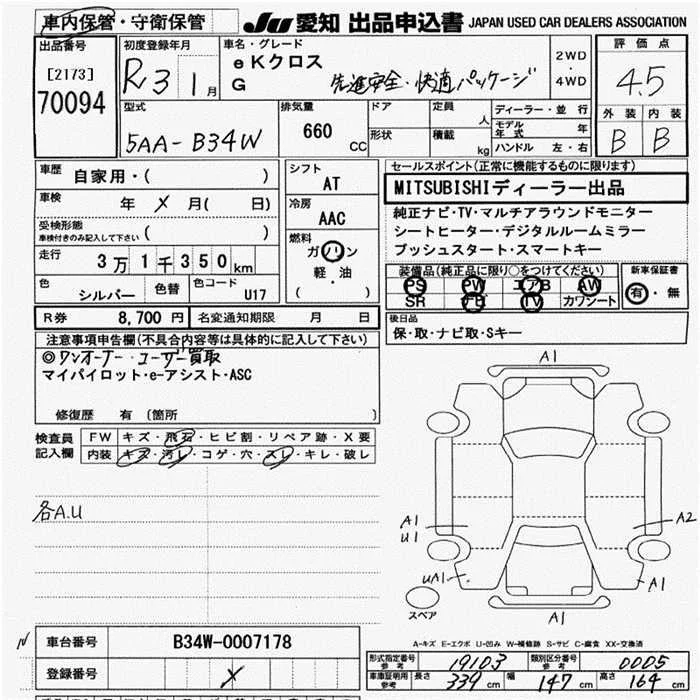 車内保管・守衛保管
JU 愛知 出品申込書 JAPAN USED CAR DEALERS ASSOCIATION
出品番号
[2173]
70094
初度登録年月
R3 1月
車名・グレード
eKクロス
G 先進安全・快適パッケージ
2WD
・
4WD
評価点
4.5
外装 内装
B B
型式
5AA-B34W
排気量
660 CC
ドア
形状
定員 人
積載 kg
ディーラー・並行
モデル年式 年
ハンドル 左・右
車歴
自家用・( )
車検
年 × 月( 日)
受検形態
車検付きのみ記入して下さい ( )
走行
3万1千350km
色
シルバー
色替
色コード
U17
シフト
AT
冷房
AAC
燃料
ガソリン
軽・油
( )
セールスポイント(正常に機能するものに限ります)
MITSUBISHIディーラー出品
純正ナビ・TV・マルチアラウンドモニター
シートヒーター・デジタルルームミラー
プッシュスタート・スマートキー
装備品(純正品に限り○をつけてください)
PS PW エアB AW
SR ナビ TV カワシート
新車保証書
有・無
R券 8,700 円 名変通知期限 月 日
後日品
保・取・ナビ取・Sキー
注意事項申告欄(不具合内容等は具体的に記入して下さい)
◎ワンオーナー・ユーザー買取
マイパイロット・e-アシスト・ASC
修復歴 有 (箇所 )
検査員
記入欄
FW キズ・飛石・ヒビ割・リペア跡・X要
内装 キズ・汚レ・コゲ・穴・スレ・キレ・破レ
各A.U
A1
A1
U1
A2
UA1
A1
スペア
A1
A-キズ E-エクボ U-凹み W-補修跡 S-サビ C-腐食 XX-交換済
N
車台番号 B34W-0007178
登録番号 ×
形式指定番号
参考
19103
類別区分番号
参考
0005
車庫証明用
参考
長さ 339cm 幅 147cm 高さ 164cm